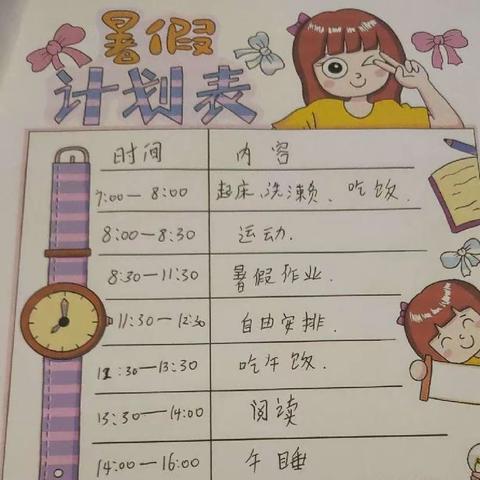 暑假
计划表
时间 内容
7:00—8:00 起床、洗濑、吃饭.
8:00—8:30 运动.
8:30—11:30 暑假作业.
11:30—12:30 自由安排.
12:30—13:30 吃午饭.
13:30—14:00 阅读
14:00—16:00 午睡